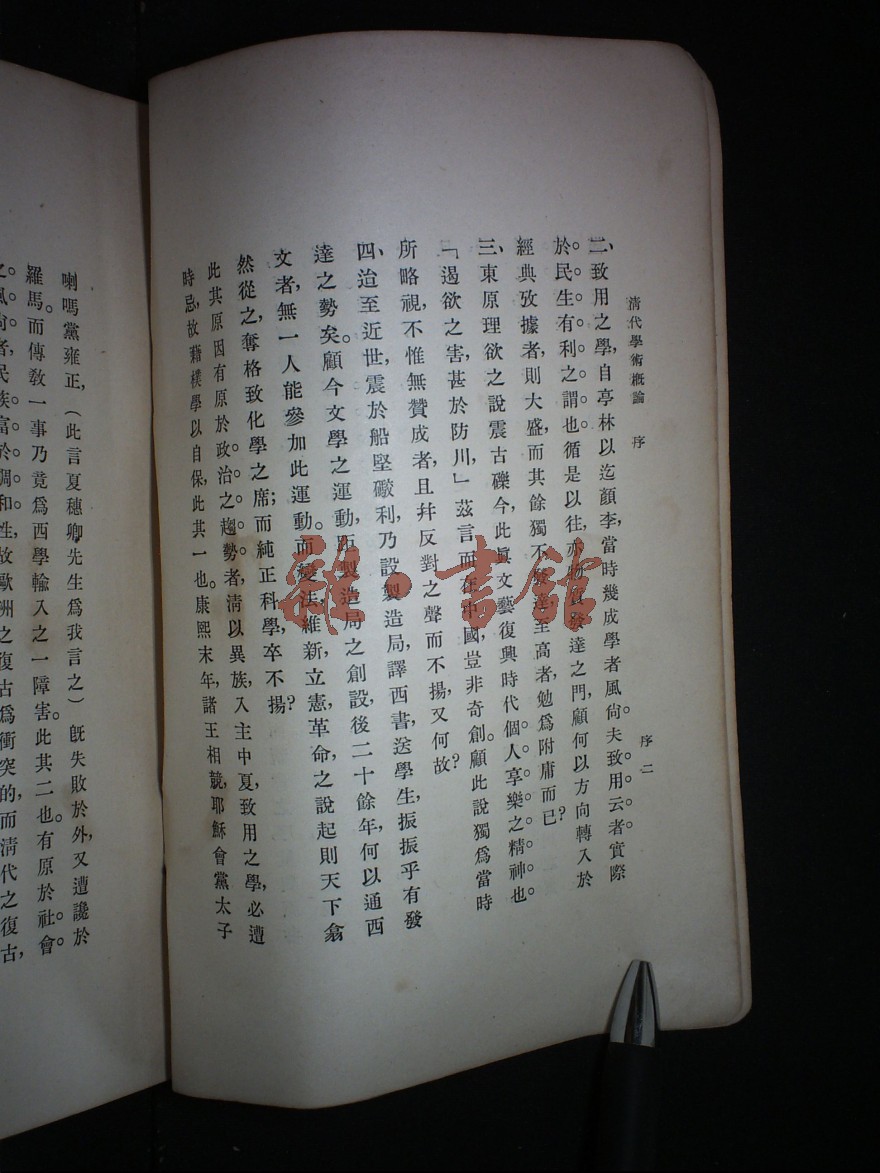 清代學術概論 序
序二
二、致用之學，自亭林以迄顏李，當時幾成學者風尚。夫致用云者，實際
於民生有利之謂也。循是以往，亦物質發達之門，顧何以方向轉入於
經典攷據者，則大盛，而其餘獨不發達，至高者，勉爲附庸而已？
三、東原理欲之說震古礫今，此眞文藝復興時代個人享樂之精神也。
「遏欲之害，甚於防川」茲言而在中國，豈非奇創，顧此說獨爲當時
所略視，不惟無贊成者，且幷反對之聲而不揚，又何故？
四、迨至近世，震於船堅礮利，乃設製造局，譯西書，送學生，振振乎有發
達之勢矣。顧今文學之運動，距製造局之創設，後二十餘年，何以通西
文者，無一人能參加此運動。而變法維新立憲革命之說起，則天下翕
然從之，奪格致化學之席；而純正科學，卒不揚？
此其原因有原於政治之趨勢者，清以異族，入主中夏，致用之學，必遭
時忌，故藉樸學以自保，此其一也。康熙末年，諸王相競，耶穌會黨太子
喇嗎黨雍正，（此言夏穗卿先生爲我言之）旣失敗於外，又遭讒於
羅馬。而傳敎一事乃竟爲西學輸入之一障害。此其二也。有原於社會
之風尚者，民族富於調和性，故歐洲之復古爲衝突的，而清代之復古，
雜·書館